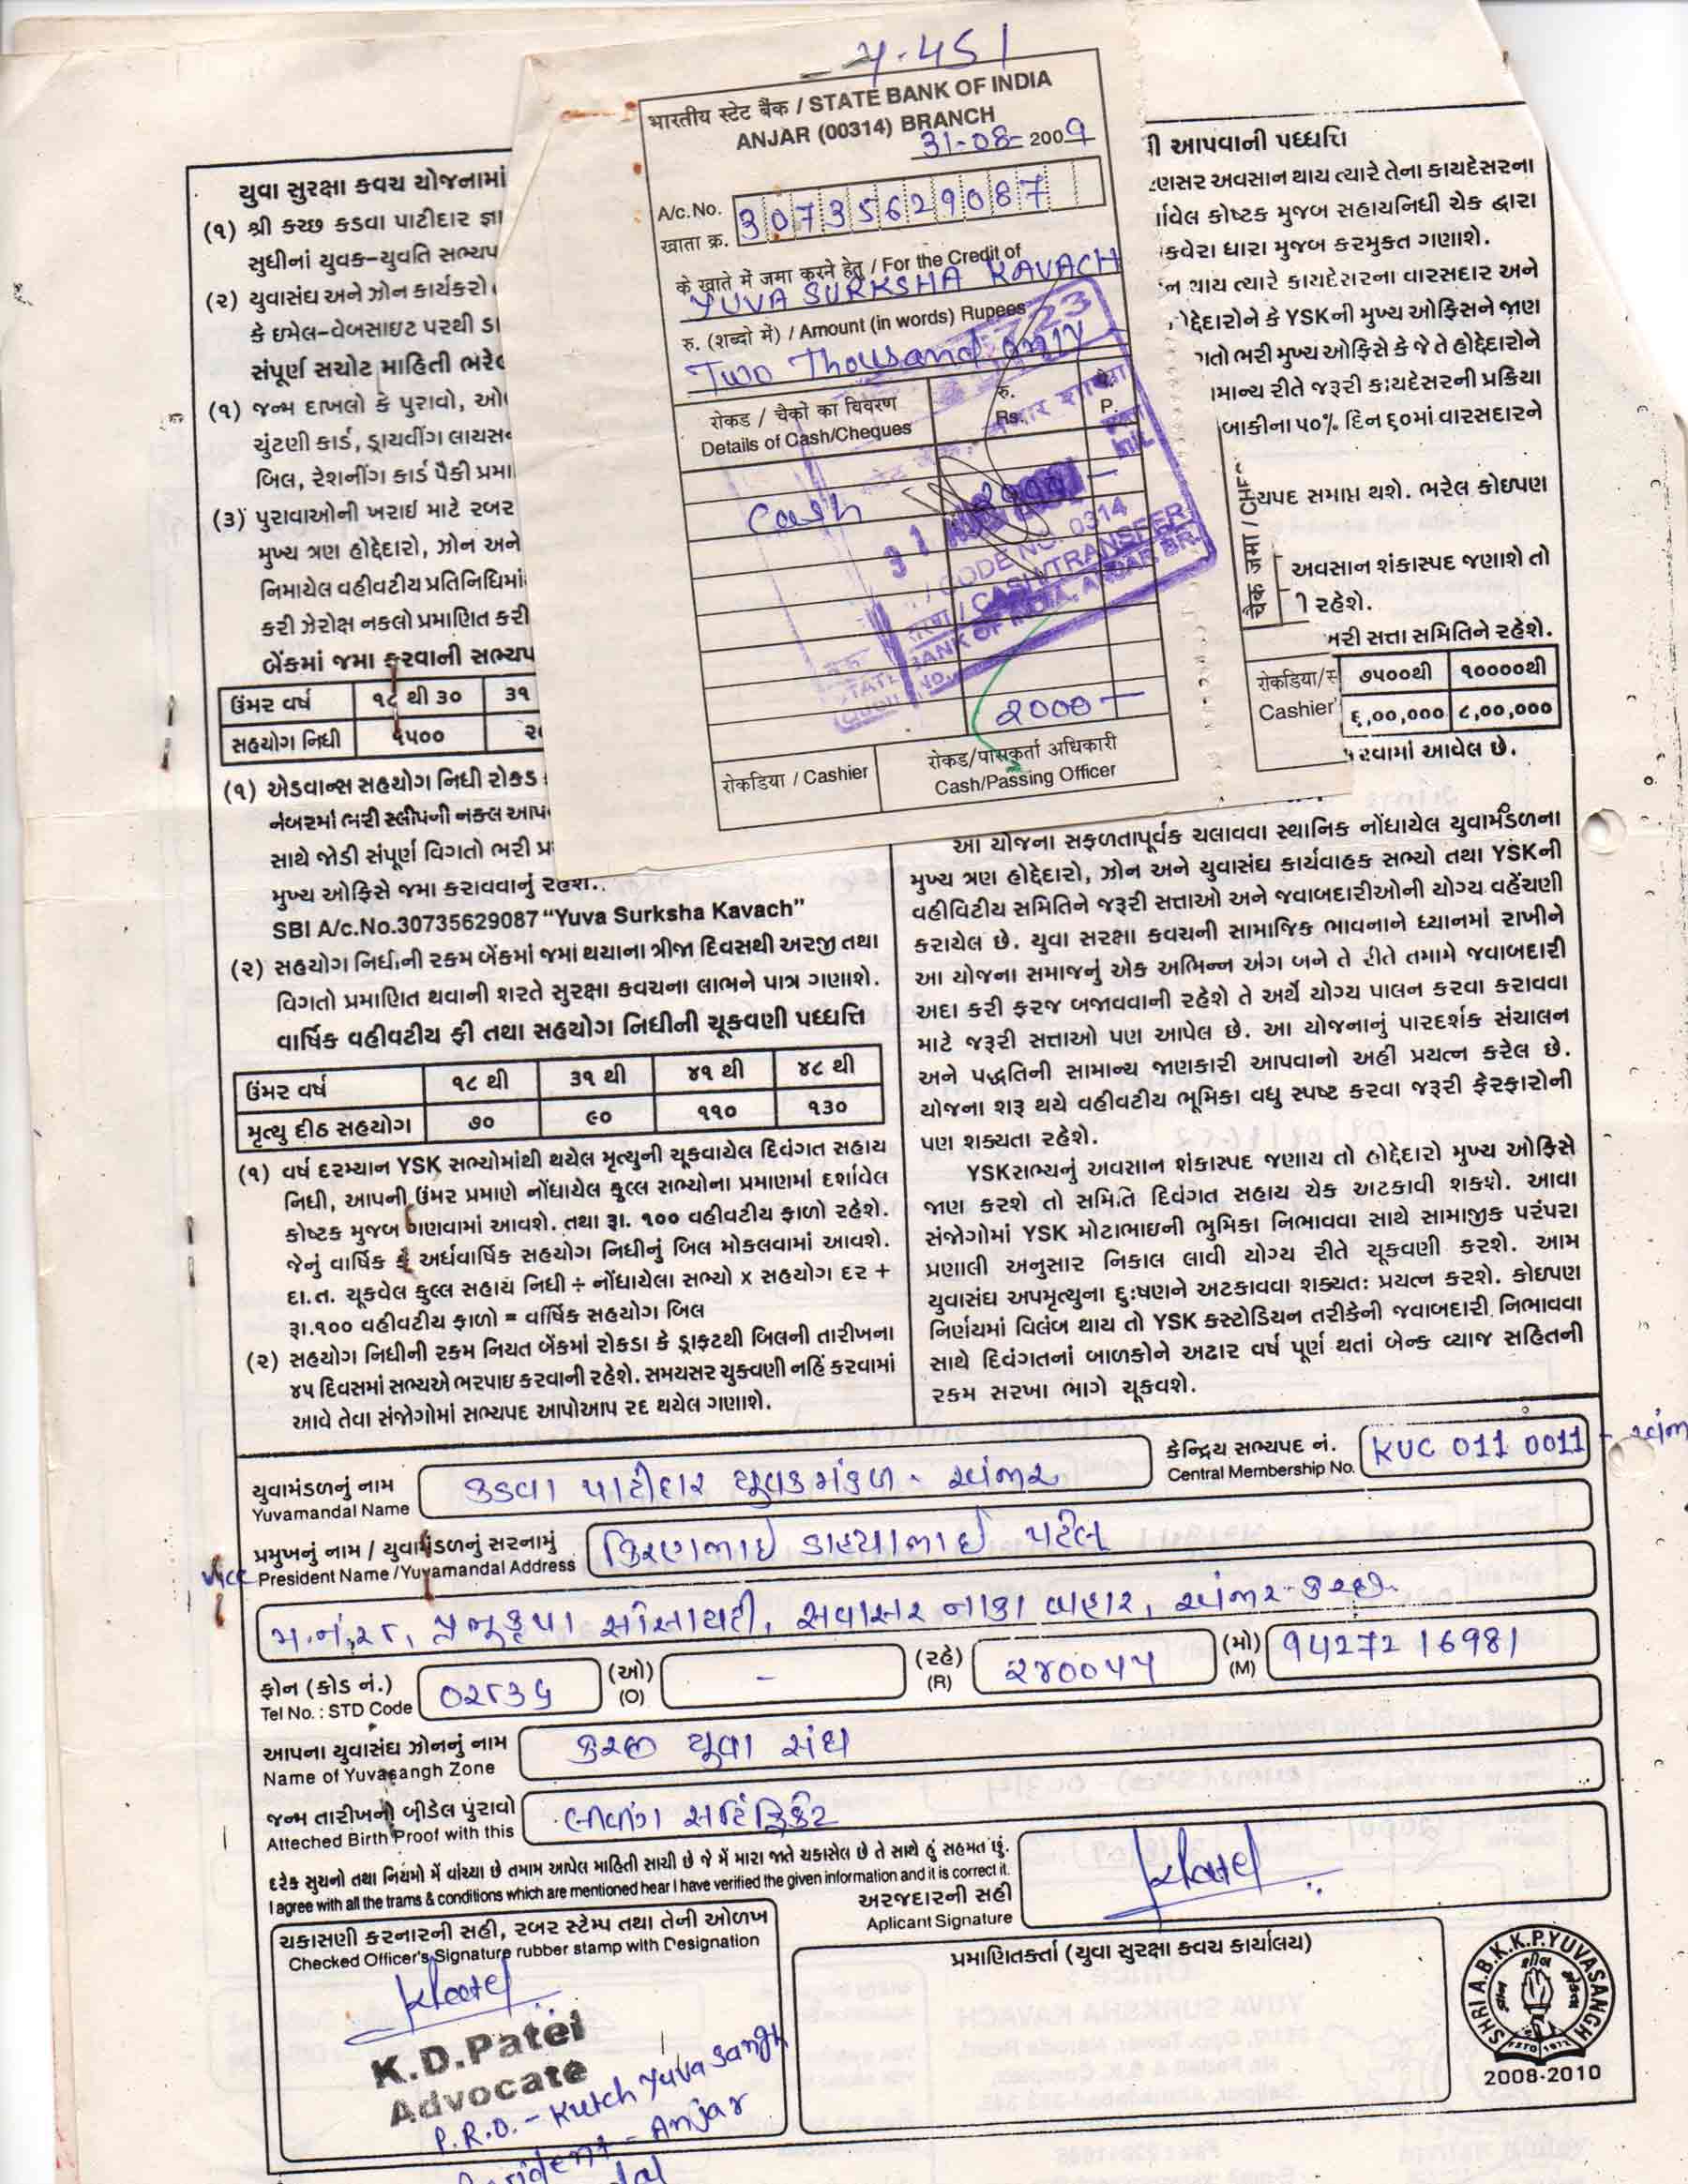 4.451
भारतीय स्टेट बैंक / STATE BANK OF INDIA
ANJAR (00314) BRANCH
31-08-2009
A/c. No. 30735629087
खाता क्र.
के खाते में जमा करने हेतु / For the Credit of
YUVA SURKSHA KAVACH
रु. (शब्दो में) / Amount (in words) Rupees
Two Thousand only
रोकड / चैकों का विवरण रु. पै.
Details of Cash/Cheques Rs. P.
Cash 2000 -
CODE NO. 0314
CASH/TRANSFER
BANK OF INDIA, ANJAR BR.
2000 —
रोकडिया / Cashier
रोकड/पासकर्ता अधिकारी
Cash/Passing Officer
चैक जमा / CHE
रोकडिया/
Cashier'
યુવા સુરક્ષા કવચ યોજનામાં
(૧) શ્રી કચ્છ કડવા પાટીદાર જ્ઞા
સુધીનાં યુવક-યુવતિ સભ્યપ
(૨) યુવાસંઘ અને ઝોન કાર્યકરો
કે ઇમેલ-વેબસાઇટ પરથી ડા
સંપૂર્ણ સચોટ માહિતી ભરેલ
(૧) જન્મ દાખલો કે પુરાવો, ઓ
ચુંટણી કાર્ડ, ડ્રાયવીંગ લાયસન
બિલ, રેશનીંગ કાર્ડ પૈકી પ્રમા
(૩) પુરાવાઓની ખરાઈ માટે રબર
મુખ્ય ત્રણ હોદ્દેદારો, ઝોન અને
નિમાયેલ વહીવટીય પ્રતિનિધિમાં
કરી ઝેરોક્ષ નકલો પ્રમાણિત કરી
બેંકમાં જમા કરવાની સભ્યપ
ઉંમર વર્ષ ૧૮ થી ૩૦ ૩૧
સહયોગ નિધી ૧૫૦૦ ૨
(૧) એડવાન્સ સહયોગ નિધી રોકડ
નંબરમાં ભરી સ્લીપની નકલ આપ
સાથે જોડી સંપૂર્ણ વિગતો ભરી પ્ર
મુખ્ય ઓફિસે જમા કરાવવાનું રહેશે.
SBI A/c.No.30735629087 “Yuva Surksha Kavach”
(૨) સહયોગ નિધીની રકમ બેંકમાં જમા થયાના ત્રીજા દિવસથી અરજી તથા
વિગતો પ્રમાણિત થવાની શરતે સુરક્ષા કવચના લાભને પાત્ર ગણાશે.
વાર્ષિક વહીવટીય ફી તથા સહયોગ નિધીની ચૂકવણી પધ્ધતિ
ઉંમર વર્ષ ૧૮ થી ૩૧ થી ૪૧ થી ૪૮ થી
મૃત્યુ દીઠ સહયોગ ૭૦ ૯૦ ૧૧૦ ૧૩૦
(૧) વર્ષ દરમ્યાન YSK સભ્યોમાંથી થયેલ મૃત્યુની ચૂકવાયેલ દિવંગત સહાય
નિધી, આપની ઉંમર પ્રમાણે નોંધાયેલ કુલ્લ સભ્યોના પ્રમાણમાં દર્શાવેલ
કોષ્ટક મુજબ ગણવામાં આવશે. તથા રૂા. ૧૦૦ વહીવટીય ફાળો રહેશે.
જેનું વાર્ષિક કે અર્ધવાર્ષિક સહયોગ નિધીનું બિલ મોકલવામાં આવશે.
દા.ત. ચૂકવેલ કુલ્લ સહાય નિધી ÷ નોંધાયેલા સભ્યો x સહયોગ દર +
રૂા.૧૦૦ વહીવટીય ફાળો = વાર્ષિક સહયોગ બિલ
(૨) સહયોગ નિધીની રકમ નિયત બેંકમાં રોકડા કે ડ્રાફટથી બિલની તારીખના
૪૫ દિવસમાં સભ્યએ ભરપાઇ કરવાની રહેશે. સમયસર ચુકવણી નહિં કરવામાં
આવે તેવા સંજોગોમાં સભ્યપદ આપોઆપ રદ થયેલ ગણાશે.
ી આપવાની પધ્ધતિ
ણસર અવસાન થાય ત્યારે તેના કાયદેસરના
ર્વિલ કોષ્ટક મુજબ સહાયનિધી ચેક દ્વારા
કવેરા ધારા મુજબ કરમુક્ત ગણાશે.
ન થાય ત્યારે કાયદેસરના વારસદાર અને
ોદ્દેદારોને કે YSKની મુખ્ય ઓફિસને જાણ
ગતો ભરી મુખ્ય ઓફિસે કે જે તે હોદ્દેદારોને
ામાન્ય રીતે જરૂરી કાયદેસરની પ્રક્રિયા
બાકીના ૫૦% દિન ૬૦માં વારસદારને
યપદ સમાપ્ત થશે. ભરેલ કોઇપણ
અવસાન શંકાસ્પદ જણાશે તો
ી રહેશે.
ખરી સત્તા સમિતિને રહેશે.
૭૫૦૦થી ૧૦૦૦૦થી
૬,૦૦,૦૦૦ ૮,૦૦,૦૦૦
કરવામાં આવેલ છે.
આ યોજના સફળતાપૂર્વક ચલાવવા સ્થાનિક નોંધાયેલ યુવામંડળના
મુખ્ય ત્રણ હોદ્દેદારો, ઝોન અને યુવાસંઘ કાર્યવાહક સભ્યો તથા YSKની
વહીવિટીય સમિતિને જરૂરી સત્તાઓ અને જવાબદારીઓની યોગ્ય વહેંચણી
કરાયેલ છે. યુવા સરક્ષા કવચની સામાજિક ભાવનાને ધ્યાનમાં રાખીને
આ યોજના સમાજનું એક અભિન્ન અંગ બને તે રીતે તમામે જવાબદારી
અદા કરી ફરજ બજાવવાની રહેશે તે અર્થે યોગ્ય પાલન કરવા કરાવવા
માટે જરૂરી સત્તાઓ પણ આપેલ છે. આ યોજનાનું પારદર્શક સંચાલન
અને પદ્ધતિની સામાન્ય જાણકારી આપવાનો અહીં પ્રયત્ન કરેલ છે.
યોજના શરૂ થયે વહીવટીય ભૂમિકા વધુ સ્પષ્ટ કરવા જરૂરી ફેરફારોની
પણ શક્યતા રહેશે.
YSKસભ્યનું અવસાન શંકાસ્પદ જણાય તો હોદ્દેદારો મુખ્ય ઓફિસે
જાણ કરશે તો સમિતિ દિવંગત સહાય ચેક અટકાવી શકશે. આવા
સંજોગોમાં YSK મોટાભાઇની ભુમિકા નિભાવવા સાથે સામાજીક પરંપરા
પ્રણાલી અનુસાર નિકાલ લાવી યોગ્ય રીતે ચૂકવણી કરશે. આમ
યુવાસંઘ અપમૃત્યુના દુઃષણને અટકાવવા શક્યતઃ પ્રયત્ન કરશે. કોઇપણ
નિર્ણયમાં વિલંબ થાય તો YSK કસ્ટોડિયન તરીકેની જવાબદારી નિભાવવા
સાથે દિવંગતનાં બાળકોને અઢાર વર્ષ પૂર્ણ થતાં બેન્ક વ્યાજ સહિતની
રકમ સરખા ભાગે ચૂકવશે.
કેન્દ્રિય સભ્યપદ નં. KUC 011 0011
Central Membership No.
યુવામંડળનું નામ કડવા પાટીદાર યુવકમંડળ - અંજાર
Yuvamandal Name
પ્રમુખનું નામ / યુવામંડળનું સરનામું કિરણભાઇ ડાહયાભાઇ પટેલ
Vice President Name /Yuvamandal Address
મ.નં.૨૮, પ્રભુકૃપા સોસાયટી, સવાસર નાકા બાહાર, અંજાર-કચ્છ
ફોન (કોડ નં.) 02836 (ઓ) - (રહે) ૨૪૦૦૫૫ (મો) 94272 16981
Tel No. : STD Code (O) (R) (M)
આપના યુવાસંઘ ઝોનનું નામ કચ્છ યુવા સંઘ
Name of Yuvasangh Zone
જન્મ તારીખનો બીડેલ પુરાવો લીવીંગ સર્ટિફિકેટ
Atteched Birth Proof with this
દરેક સુચનો તથા નિયમો મેં વાંચ્યા છે તમામ આપેલ માહિતી સાચી છે જે મેં મારા જાતે ચકાસેલ છે તે સાથે હું સહમત છું.
I agree with all the trams & conditions which are mentioned hear I have verified the given information and it is correct it.
અરજદારની સહી
Aplicant Signature
ચકાસણી કરનારની સહી, રબર સ્ટેમ્પ તથા તેની ઓળખ
Checked Officer's Signature rubber stamp with Designation
K.D.Patel
Advocate
P.R.O. - Kutch Yuva Sangh
esident - Anjar
dal
પ્રમાણિતકર્તા (યુવા સુરક્ષા કવચ કાર્યાલય)
SHRI A.B.K.K.P.YUVASANGH
2008-2010